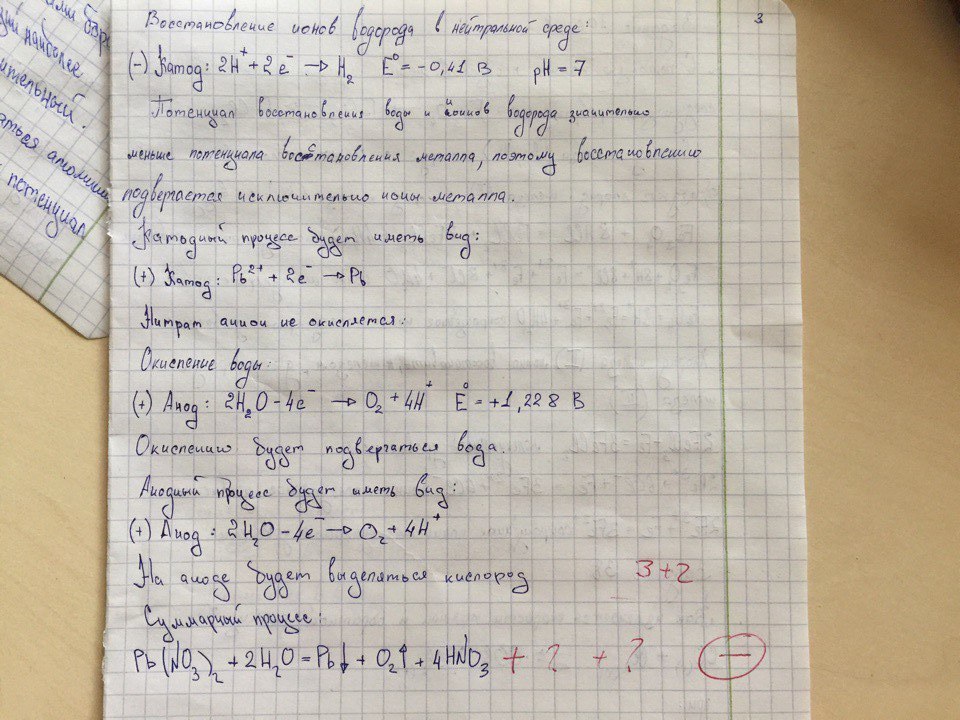 ами
ций наиболее
ительный.
аться
потенциал
3
Восстановление ионов водорода в нейтральной среде:
(-) Катод: 2H⁺ + 2e⁻ → H₂ E⁰ = -0,41 В pH = 7
Потенциал восстановления воды и ионов водорода значительно
меньше потенциала восстановления металла, поэтому восстановлению
подвергается исключительно ионы металла.
Катодный процесс будет иметь вид:
(+) Катод: Pb²⁺ + 2e⁻ → Pb
Нитрат анион не окисляется:
Окисление воды:
(+) Анод: 2H₂O - 4e⁻ → O₂ + 4H⁺ E⁰ = +1,228 В
Окислению будет подвергаться вода.
Анодный процесс будет иметь вид:
(+) Анод: 2H₂O - 4e⁻ → O₂ + 4H⁺
На аноде будет выделяться кислород
3+2
Суммарный процесс:
Pb(NO₃)₂ + 2H₂O = Pb↓ + O₂↑ + 4HNO₃ + ? + ? −